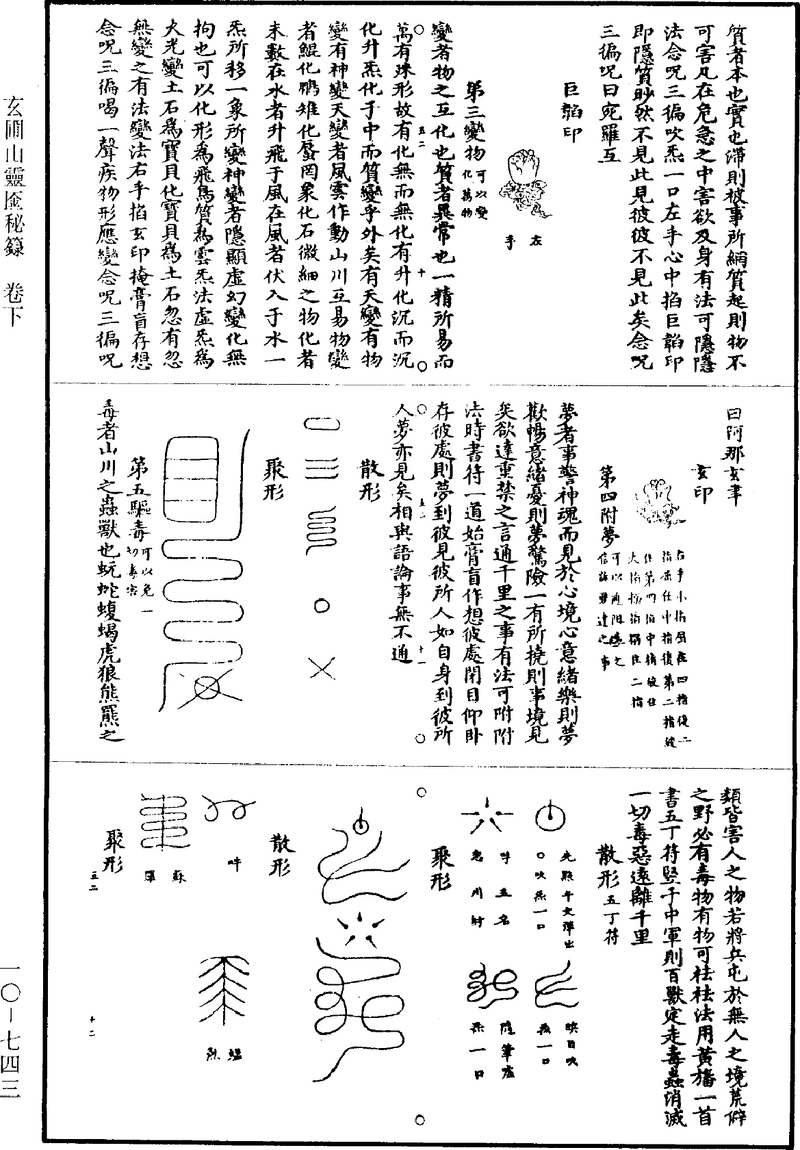 質者本也實也滯則被事所綱質起則物不
可害凡在危急之中害欲及身有法可隱隱
法念呪三徧吹炁一口左手心中掐巨韜印
即隱質眇然不見此見彼彼不見此矣念呪
三徧呪曰宛羅互
巨韜印
左手
第三變物可以變化萬物
變者物之互化也質者異常也一精所易而
萬有殊形故有化無而無化有升化沉而沉
化升炁化于中而質變乎外矣有天變有物
變有神變天變者風雲作動山川互易物變
者鯤化鵬雉化蜃罔象化石微細之物化者
未數在水者升飛于風在風者伏入于水一
炁所移一象所變神變者隱顯虛幻變化無
拘也可以化形為飛鳥質為雲炁法虛炁為
火光變土石為寶貝化寶貝為土石忽有忽
無變之有法變法右手掐玄印掩膏肓存想
念呪三徧喝一聲疾物形應變念呪三徧呪
曰阿那玄聿
玄印
第四附夢可以通阻隔之信話難達之事
夢者事警神魂而見於心境心意緒樂則夢
歡暢意緒憂則夢驚險一有所撓則事境見
矣欲達重禁之言通千里之事有法可附附
法時書符一道始膏肓作想彼處閉目仰卧
存彼處則夢到彼見彼所人如自身到彼所
人夢亦見矣相與語論事無不通
散形
聚形
第五驅毒可以免一切毒害
毒者山川之蟲獸也蚖蛇蝮蝎虎狼熊羆之
類皆害人之物若將兵屯於無人之境荒僻
之野必有毒物有物可袪袪法用黃旛一首
書五丁符竪于中軍則百獸定走毒蟲消滅
一切毒惡遠離千里
散形五丁符
聚形
散形
聚形
玄圃山靈𠤎秘籙 卷下
一〇-七四三